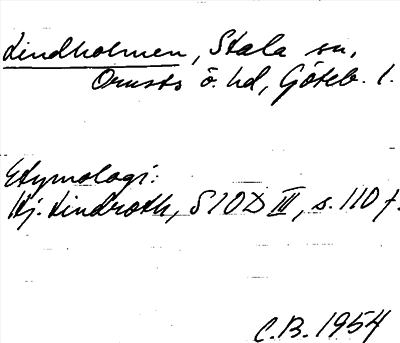 Lindholmen, Stala sn,
Orusts ö. hd, Göteb. l.
Etymologi:
Hj. Lindroth, SIOD III, s. 110 f.
C.B. 1954